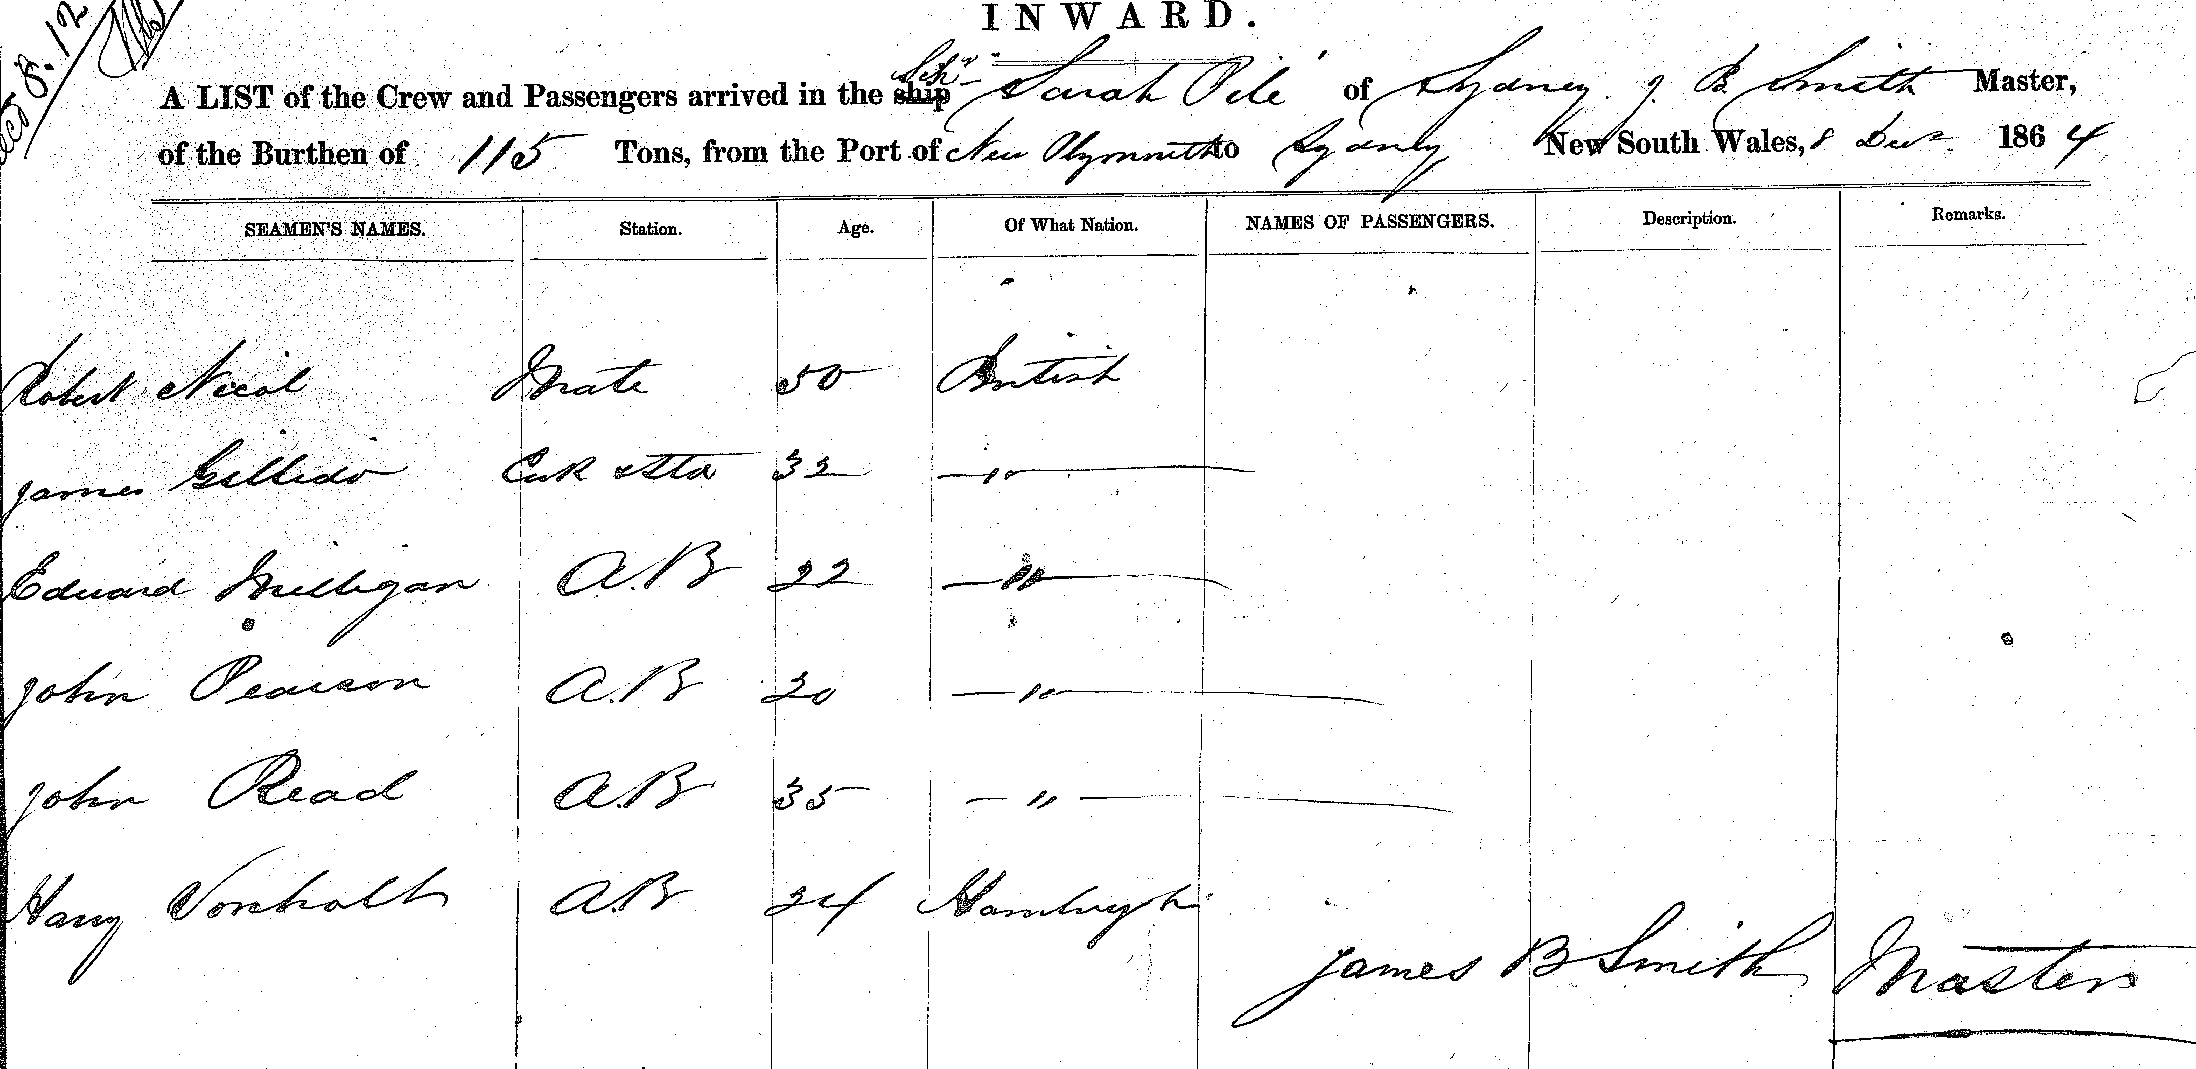 INWARD.
A LIST of the Crew and Passengers arrived in the ship Schr Sarah Pile of Sydney J. B Smith Master,
of the Burthen of 115 Tons, from the Port of New Plymouth to Sydney New South Wales, 8 Decr 1864
SEAMEN'S NAMES. Station. Age. Of What Nation. NAMES OF PASSENGERS. Description. Remarks.
Robert Nicol Mate 50 British
James 32 "
Edward Milligan A.B 22 "
John Pearson A.B 20 "
John Read A.B 35 "
Harry A.B 24
James B Smith Master